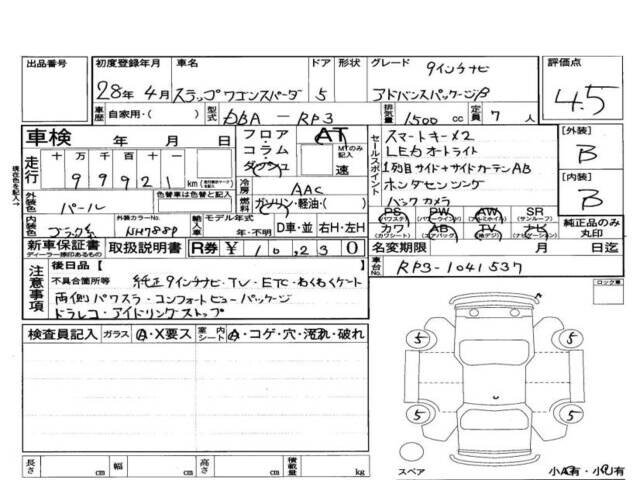 出品番号 初度登録年月 車名 ドア 形状 グレード 9インチナビ 評価点
28年4月 ステップワゴンスパーダ 5 アドバンスパッケージβ 4.5
車歴 自家用・( ) 型式 DBA - RP3 排気量 1500 cc 定員 7 人
車検 年 月 日 フロア AT スマートキー×2 [外装]
走行 十 万 千 百 十 一 コラム MTのみ記入 LEDオートライト B
9 9 9 2 1 km ダッシュ 速 1列目サイド+サイドカーテンAB
現在色を記入→ セールスポイント ホンダセンシング [内装]
外装色 パール 色替車は元色( ) 冷房 AAC バックカメラ B
燃料 ガソリン・軽油・( ) PS PW AW SR
(パワステ) (パワーウィンド) (アルミホイール) (サンルーフ)
内装色 ブラック系 外装カラーNo. NH788P 輸入車 モデル年式 年・不明 D車・並 右H・左H カワ AB TV ナビ 純正品のみ丸印
(カワシート) (エアバック) (地デジ) (ナビゲーション)
新車保証書 取扱説明書 R券 ¥ 10,230 名変期限 月 日迄
ディーラー捺印あるもの
注意事項 後日品【 】 車台No. RP3-1041537
不具合箇所等 純正9インチナビ・TV・ETC・わくわくゲート ロック車
両側パワスラ・コンフォートビューパッケージ
ドラレコ・アイドリングストップ
検査員記入 ガラス A・X要ス 室内シート A・コゲ・穴・汚れ・破れ
5 5
5 5
長さ cm 幅 cm 高さ cm 積載量 kg スペア 小A有・小U有